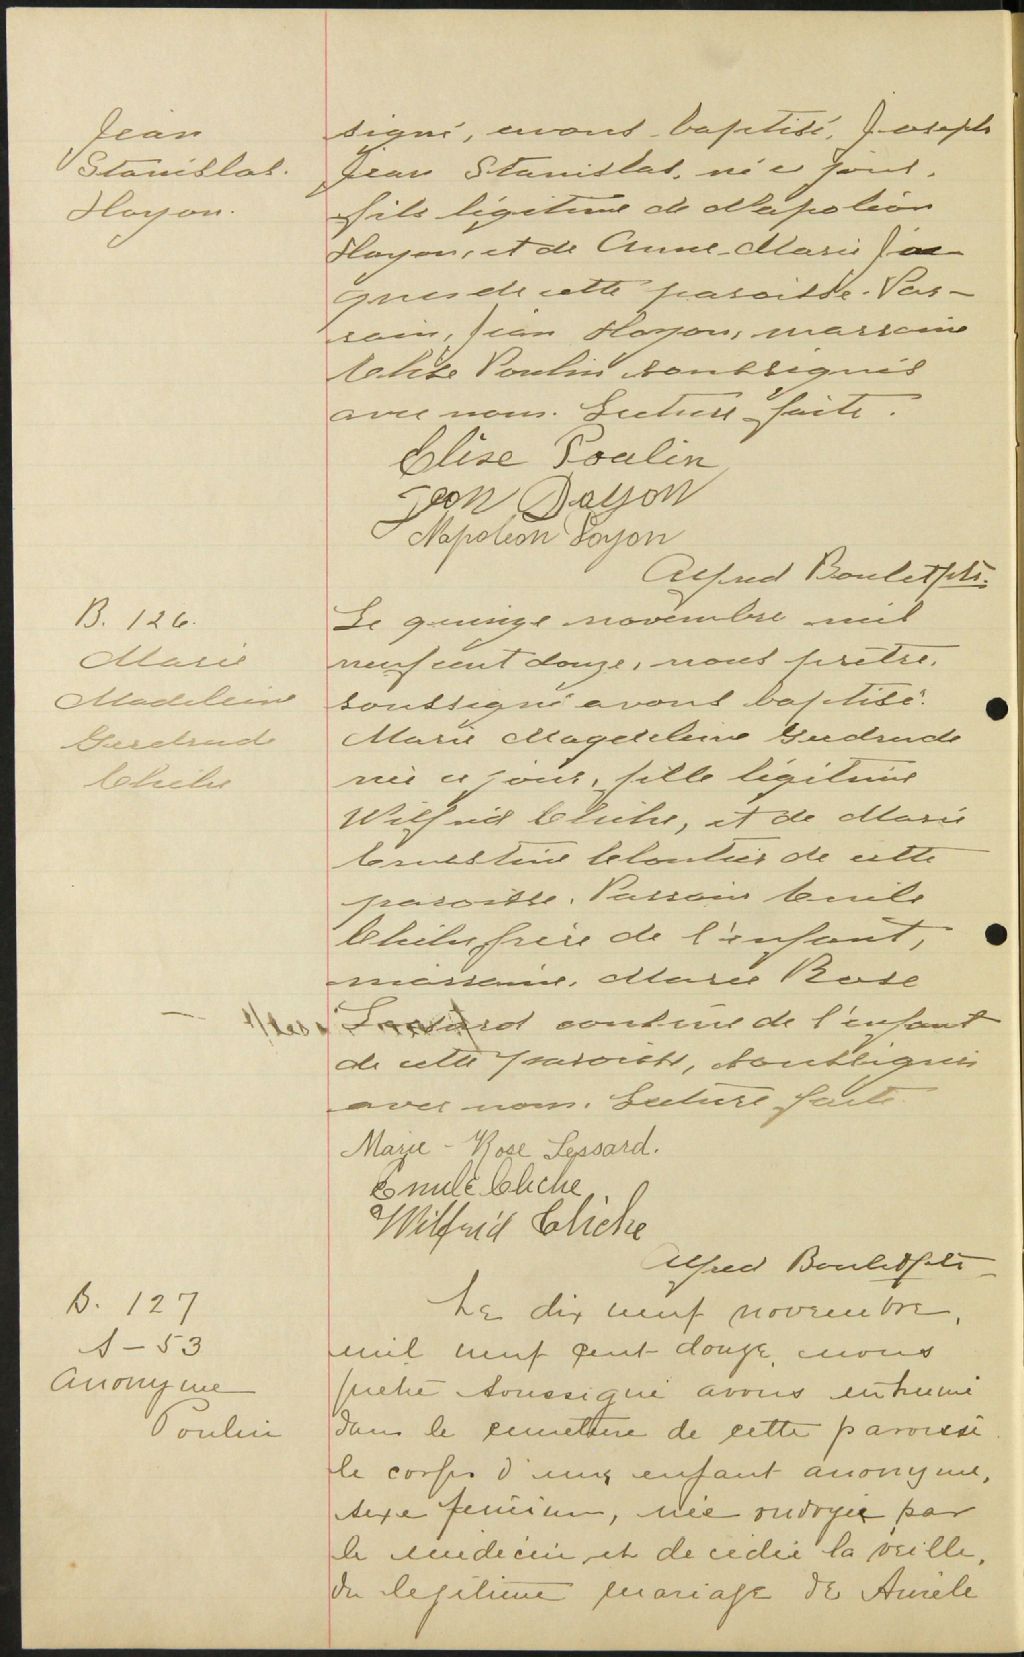 Jean
Stanislas.
Doyon.
signé, avons baptisé, Joseph
Jean Stanislas, né ce jour,
fils légitime de Napoléon
Doyon, et de Anne-Marie Jac-
ques de cette paroisse. Par-
rain, Jean Doyon, marraine
Elise Poulin soussignés
avec nous. Lecture faite.
Elise Poulin
Jean Doyon
Napoléon Doyon
Alfred Boulet ptr.
B. 126.
Marie
Madeleine
Gertrude
Cliche
Le quinze novembre mil
neuf cent douze, nous prêtre,
soussigné avons baptisé
Marie Magdeleine Gertrude
née ce jour, fille légitime
Wilfrid Cliche, et de Marie
Ernestine Cloutier de cette
paroisse. Parrain Emile
Cliche, frère de l'enfant,
marraine, Marie Rose
Lessard cousine de l'enfant
de cette paroisse, soussignés
avec nous. Lecture faite.
Marie-Rose Lessard.
Emile Cliche
Wilfrid Cliche
Alfred Boulet ptr
B. 127
S-53
Anonyme
Poulin
Le dix neuf novembre,
mil neuf cent douze, nous
prêtre soussigné avons inhumé
dans le cimetière de cette paroisse
le corps d'une enfant anonyme,
sexe féminin, née ondoyée par
le médecin et décédée la veille,
du légitime mariage de Aurèle